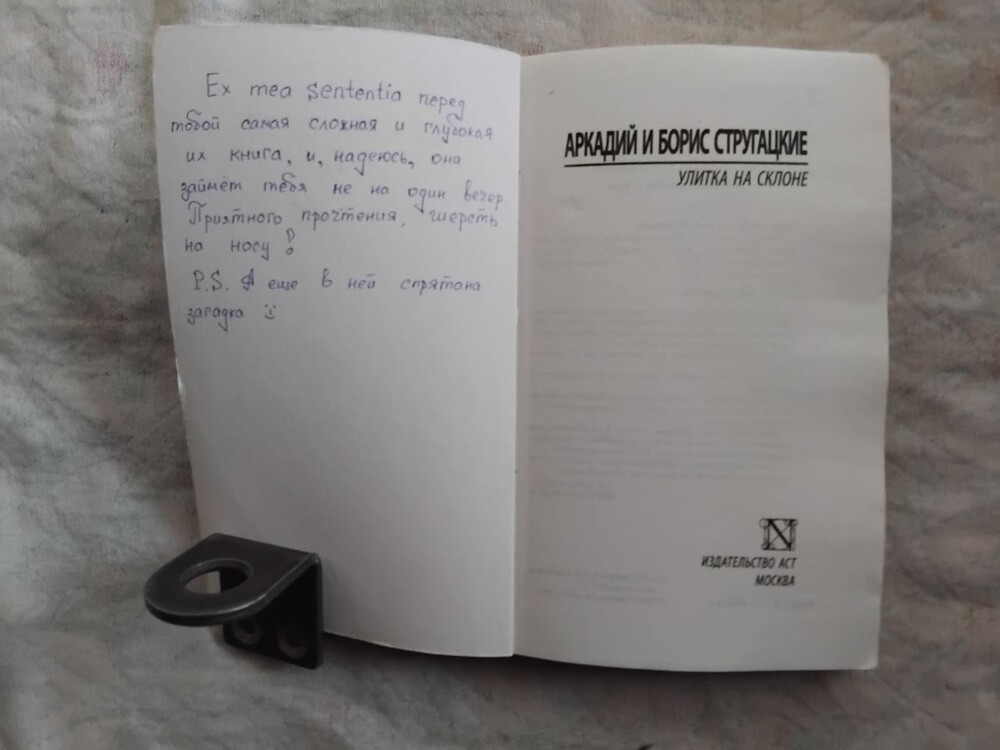 Ex mea sententia перед
тобой самая сложная и глубокая
их книга, и, надеюсь, она
займёт тебя не на один вечер.
Приятного прочтения, шерсть
на носу!
P.S. А еще в ней спрятана
загадка :)
АРКАДИЙ И БОРИС СТРУГАЦКИЕ
УЛИТКА НА СКЛОНЕ
ИЗДАТЕЛЬСТВО АСТ
МОСКВА